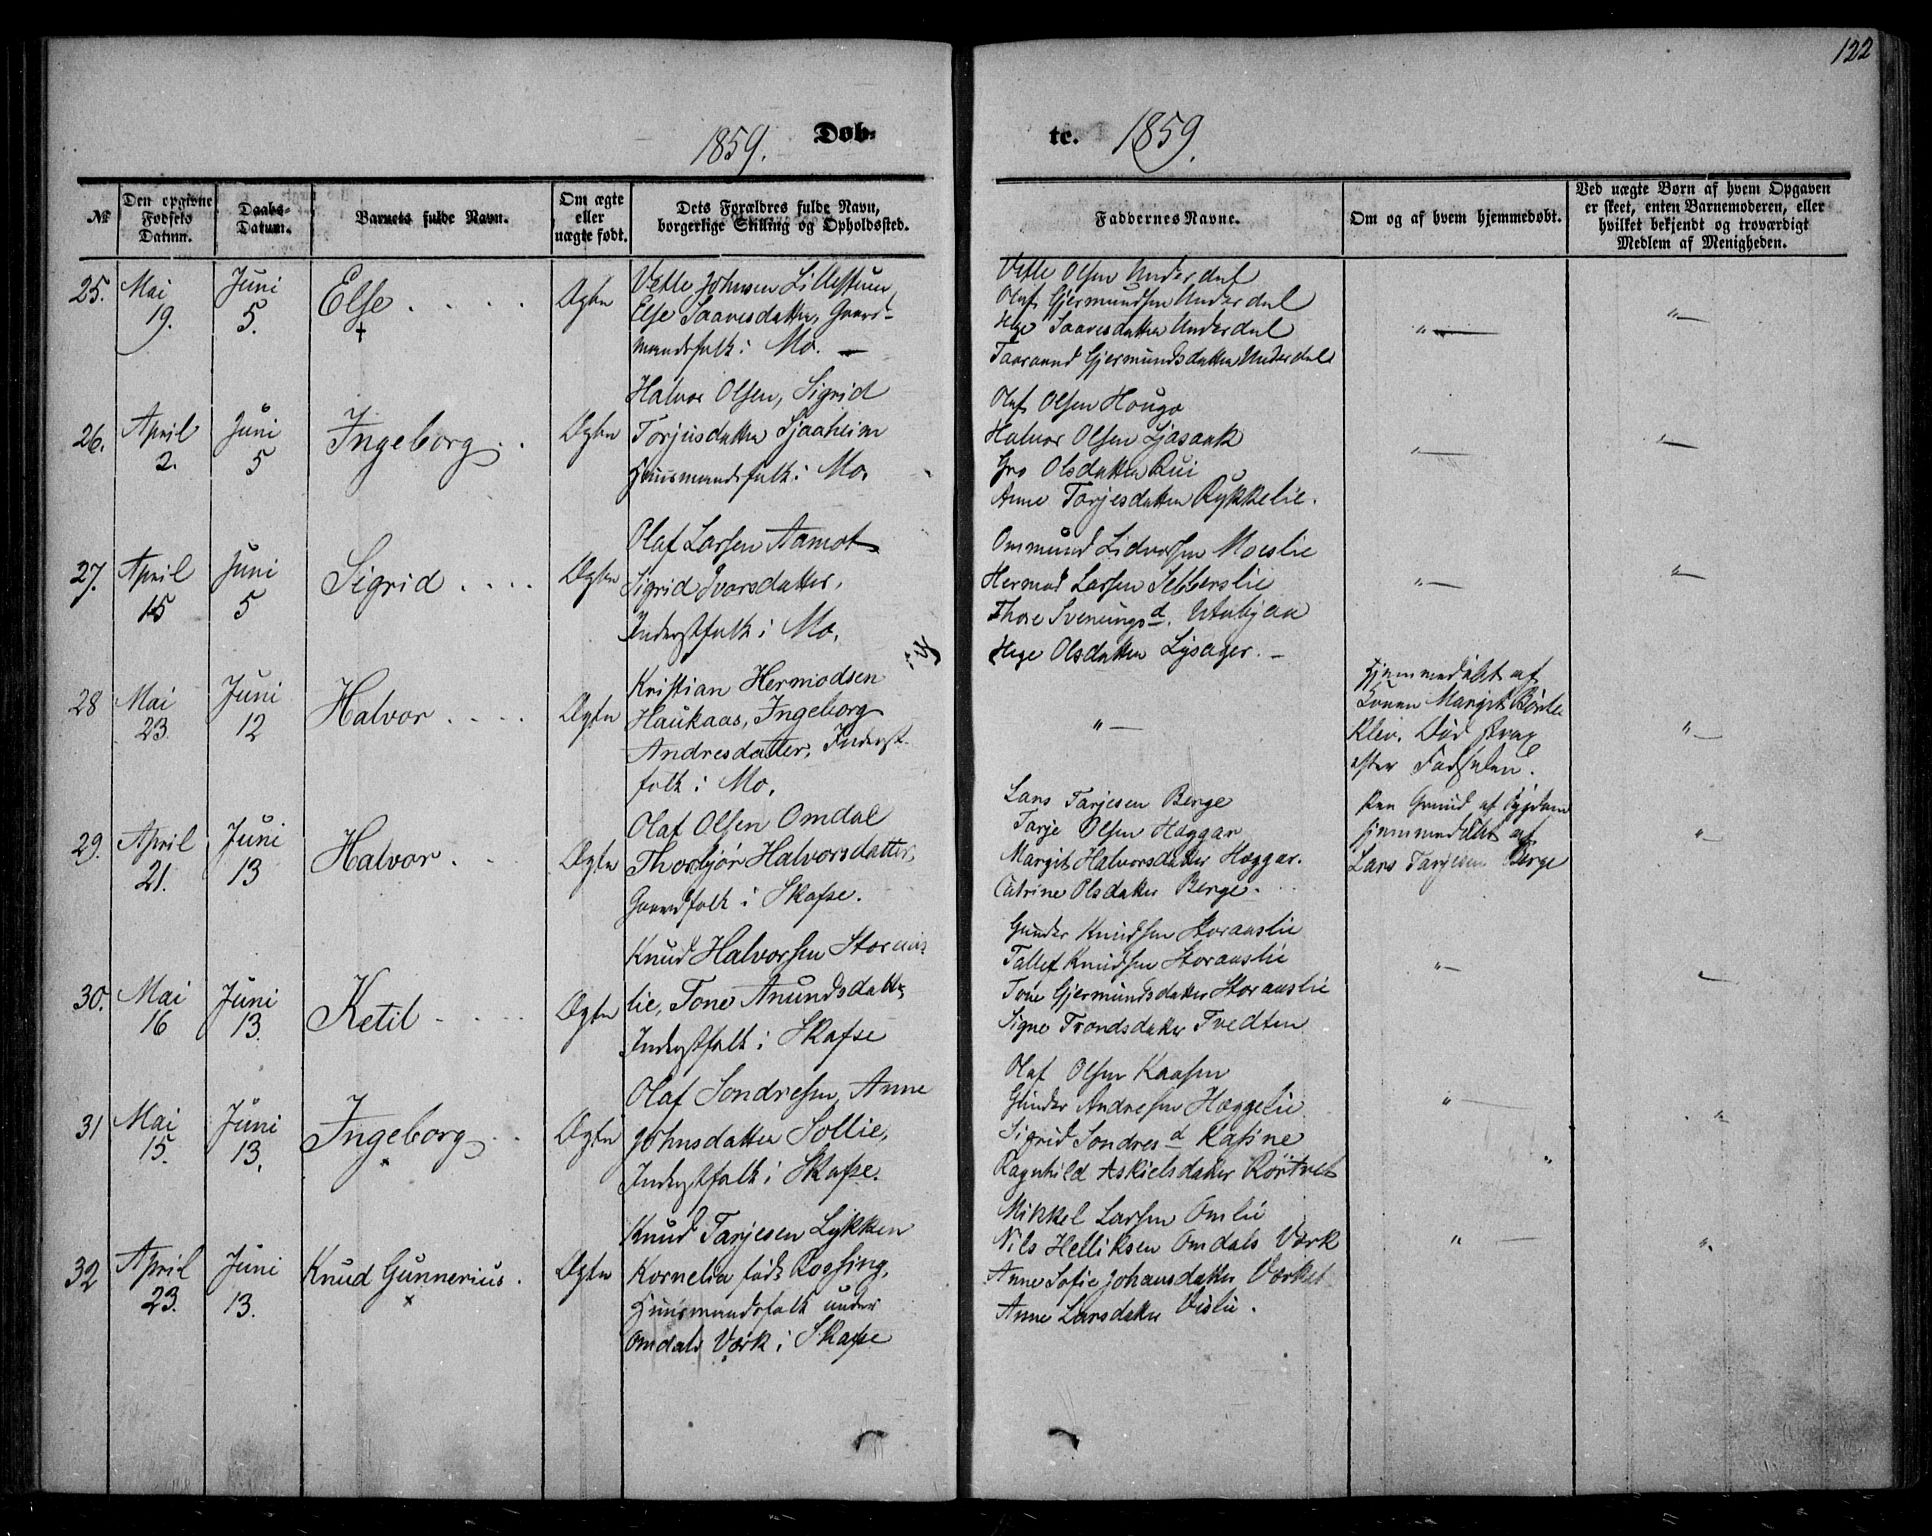 122
1859. Døb-
te. 1859.
№
Den opgivne Fødsels Datum.
Daabs-Datum.
Barnets fulde Navn.
Om ægte eller uægte født.
Dets Forældres fulde Navn, borgerlige Stilling og Opholdssted.
Faddernes Navne.
Om og af hvem hjemmedøbt.
Ved uægte Børn af hvem Opgaven er skeet, enten Barnemoderen, eller hvilket bekjendt og troværdigt Medlem af Menigheden.
25. Mai 19. Juni 5. Else Ægte
Vetle Johnsen Lillestuen
Else Saavesdatter, Gaard-
mandsfolk i Mo.
Vetle Olsen Underdal
Oluf Gjermundsen Underdal
Hege Saavesdatter Underdal
Taaraand Gjermundsdatter Underdal
26. April 2. Juni 5 Ingeborg Ægte
Halvor Olsen, Sigrid
Torjusdatter Sjaaheim
Huusmandsfolk i Mo.
Oluf Olsen Hougo
Halvor Olsen Ljosaak
Gro Olsdatter Rui
Anne Tarjesdatter Rykkelie.
27. April 15 Juni 5 Sigrid Ægte
Olaf Larsen Aamot
Sigrid Ivarsdatter,
Inderstfolk i Mo.
Ommund Lidvorsen Moeslie
Hermod Larsen Sebberslie
Thore Svenungsd. Utabjaa
Hege Olsdatter Lysager.
28 Mai 23. Juni 12 Halvor Ægte
Kristian Hermodsen
Haukaas, Ingeborg
Andresdatter, Inderst-
folk i Mo.
Hjemmedøbt af
Konen Margit Børte
Kleiv. Død strax
efter Fødselen.
29. April 21. Juni 13 Halvor Ægte
Olaf Olsen Omdal
Thorbjør Halvorsdatter,
Gaardfolk i Skafse.
Lars Tarjesen Berge
Tarje Olsen Hæggar
Margit Halvorsdatter Hæggar.
Catrine Olsdatter Berge.
Paa Grund af Sygdom
hjemmedøbt af
Lars Tarjesen Berge
30. Mai 16 Juni 13. Ketil Ægte
Knud Halvorsen Storaus-
lie, Tone Anundsdatter
Inderstfolk i Skafse
Gunder Knudsen Storauslie
Tallef Knudsen Storauslie
Tone Gjermundsdatter Storauslie
Signe Trondsdatter Tvedten
31 Mai 15. Juni 13. Ingeborg Ægte
Olaf Sondresen, Anne
Johnsdatter Sollie,
Inderstfolk i Skafse.
Olaf Olsen Kaasen
Gunder Andresen Hæggelie
Sigrid Sondresd Kasine
Ragnhild Askielsdatter Rørtvet
32 April 23. Juni 13. Knud Gunnerius. Ægte
Knud Tarjesen Lykken
Kornelia født Rossing,
Huusmandsfolk under
Omdals Værk i Skafse
Mikkel Larsen Omlie
Nils Helliksen Omdals Værk
Anne Sofie Johansdatter Værket
Anne Larsdatter Vislie.